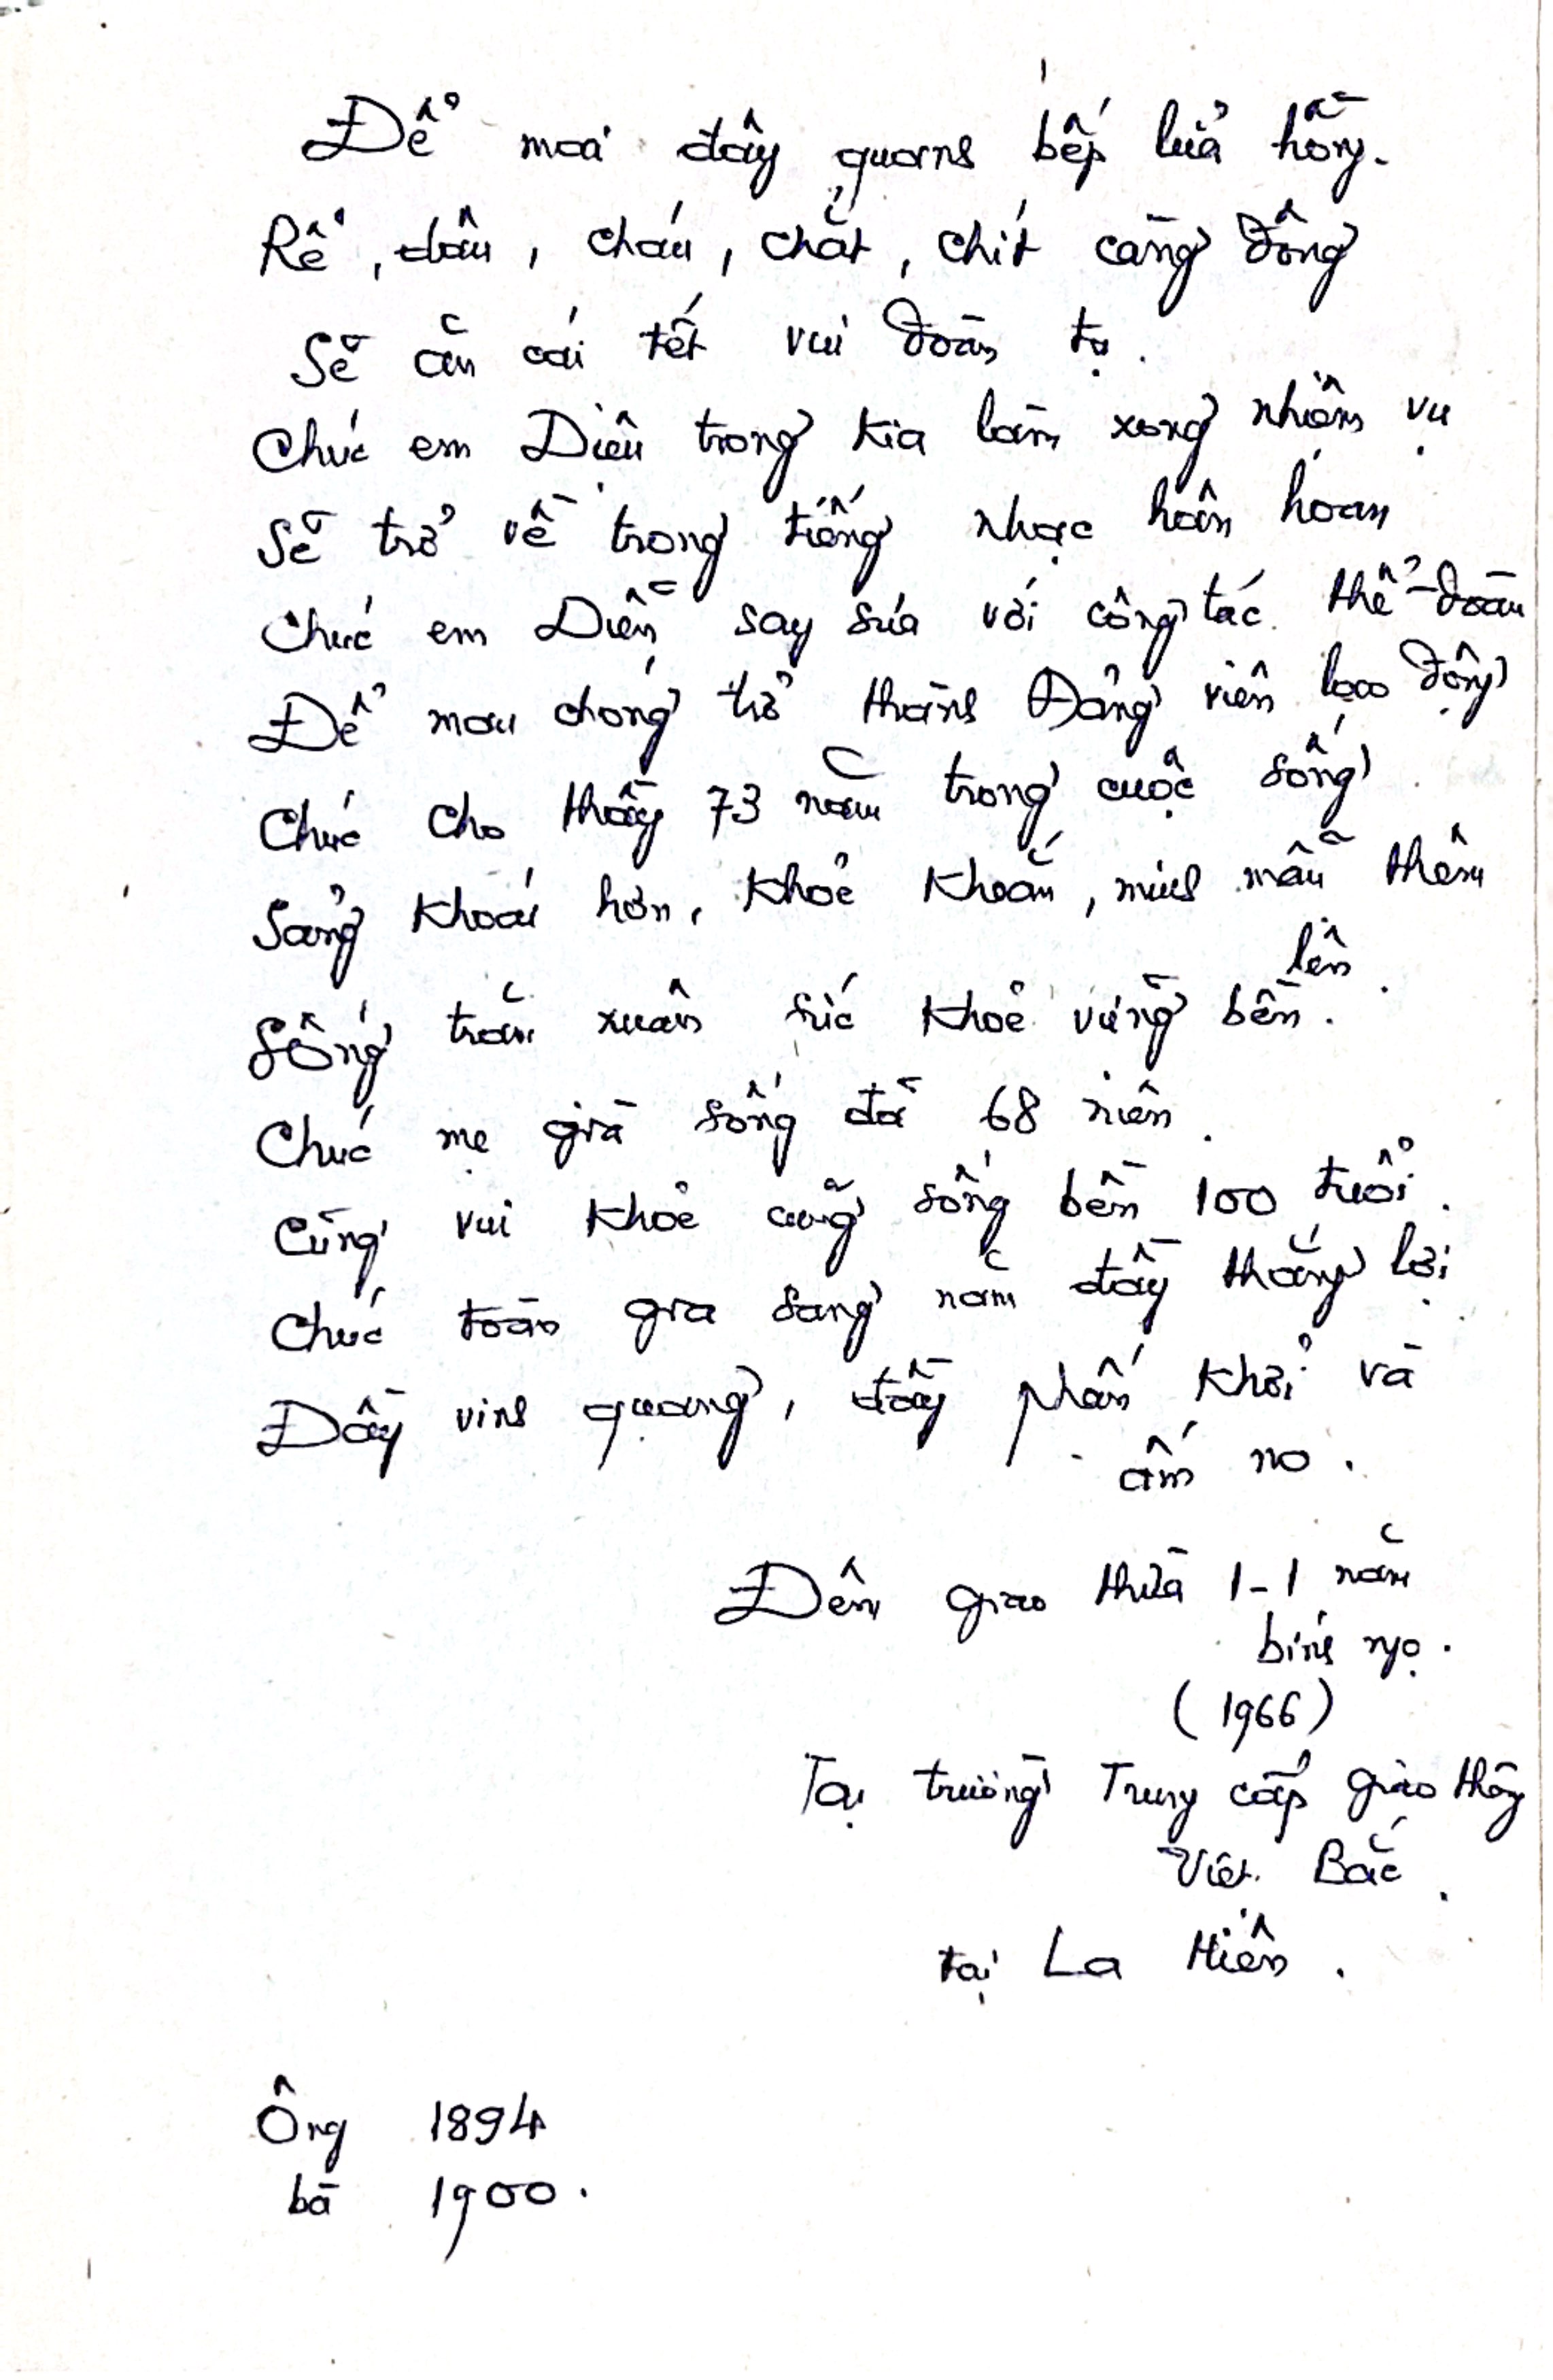 Để mai đây quanh bếp lửa hồng.
Rể, dâu, cháu, chắt, chít càng đông
Sẽ ăn cái tết vui đoàn tụ.
Chúc em Diệu trong kia làm xong nhiệm vụ
Sẽ trở về trong tiếng nhạc hân hoan
Chúc em Diễn say sưa với công tác thể-đoàn
Để mau chóng trở thành Đảng viên lao động
Chúc cho thầy 73 năm trong cuộc sống
Sảng khoái hơn, khỏe khoắn, minh mẫn thêm
lên.
Sống trăm xuân sức khỏe vững bền.
Chúc mẹ già sống đã 68 niên.
Cũng vui khỏe cũng sống bền 100 tuổi.
Chúc toàn gia sang năm đầy thắng lợi
Đầy vinh quang, đầy phấn khởi và
ấm no.
Đêm giao thừa 1-1 năm
bính ngọ.
(1966)
Tại trường Trung cấp giao thông
Việt Bắc.
tại La Hiên.
Ông 1894
bà 1900.